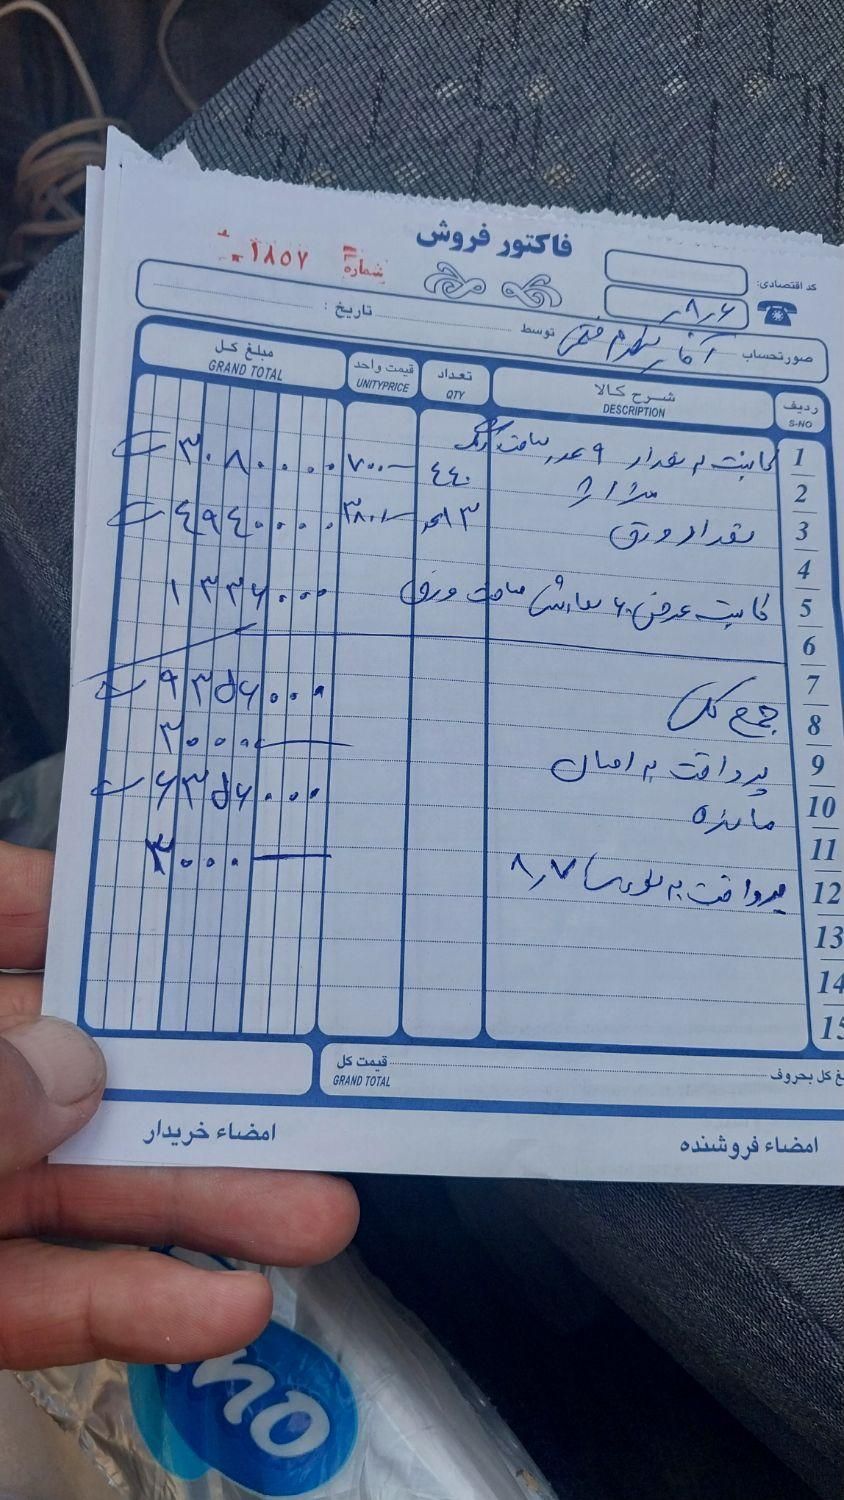 فاکتور فروش
شماره ۱۸۵۷
کد اقتصادی:
۸٫۶
صورتحساب آقای توسط تاریخ :
ردیف S-NO شرح کالا DESCRIPTION تعداد QTY قیمت واحد UNITYPRICE مبلغ کل GRAND TOTAL
1 کابینت به تعداد ۹ عدد ساخت رنگ ۷۰۰۰ ۳۰۸۰۰۰۰
2 متراژ ۴۴۰
3 تعداد ورق ۱۳ عدد ۳۸۰۰۰ ۴۹۴۰۰۰۰
4
5 کابینت عرض ۶۰ ساخت ورق ۱۳۳۶۰۰۰
6
7 ۹۳۵۶۰۰۰
8 جمع کل ۳۰۰۰
9 پرداخت به ۶۳۵۶۰۰۰
10 مانده
11 ۳۰۰۰
12 پرداخت به ۸٫۷
13
14
15
غ کل بحروف قیمت کل
GRAND TOTAL
امضاء فروشنده امضاء خریدار
no